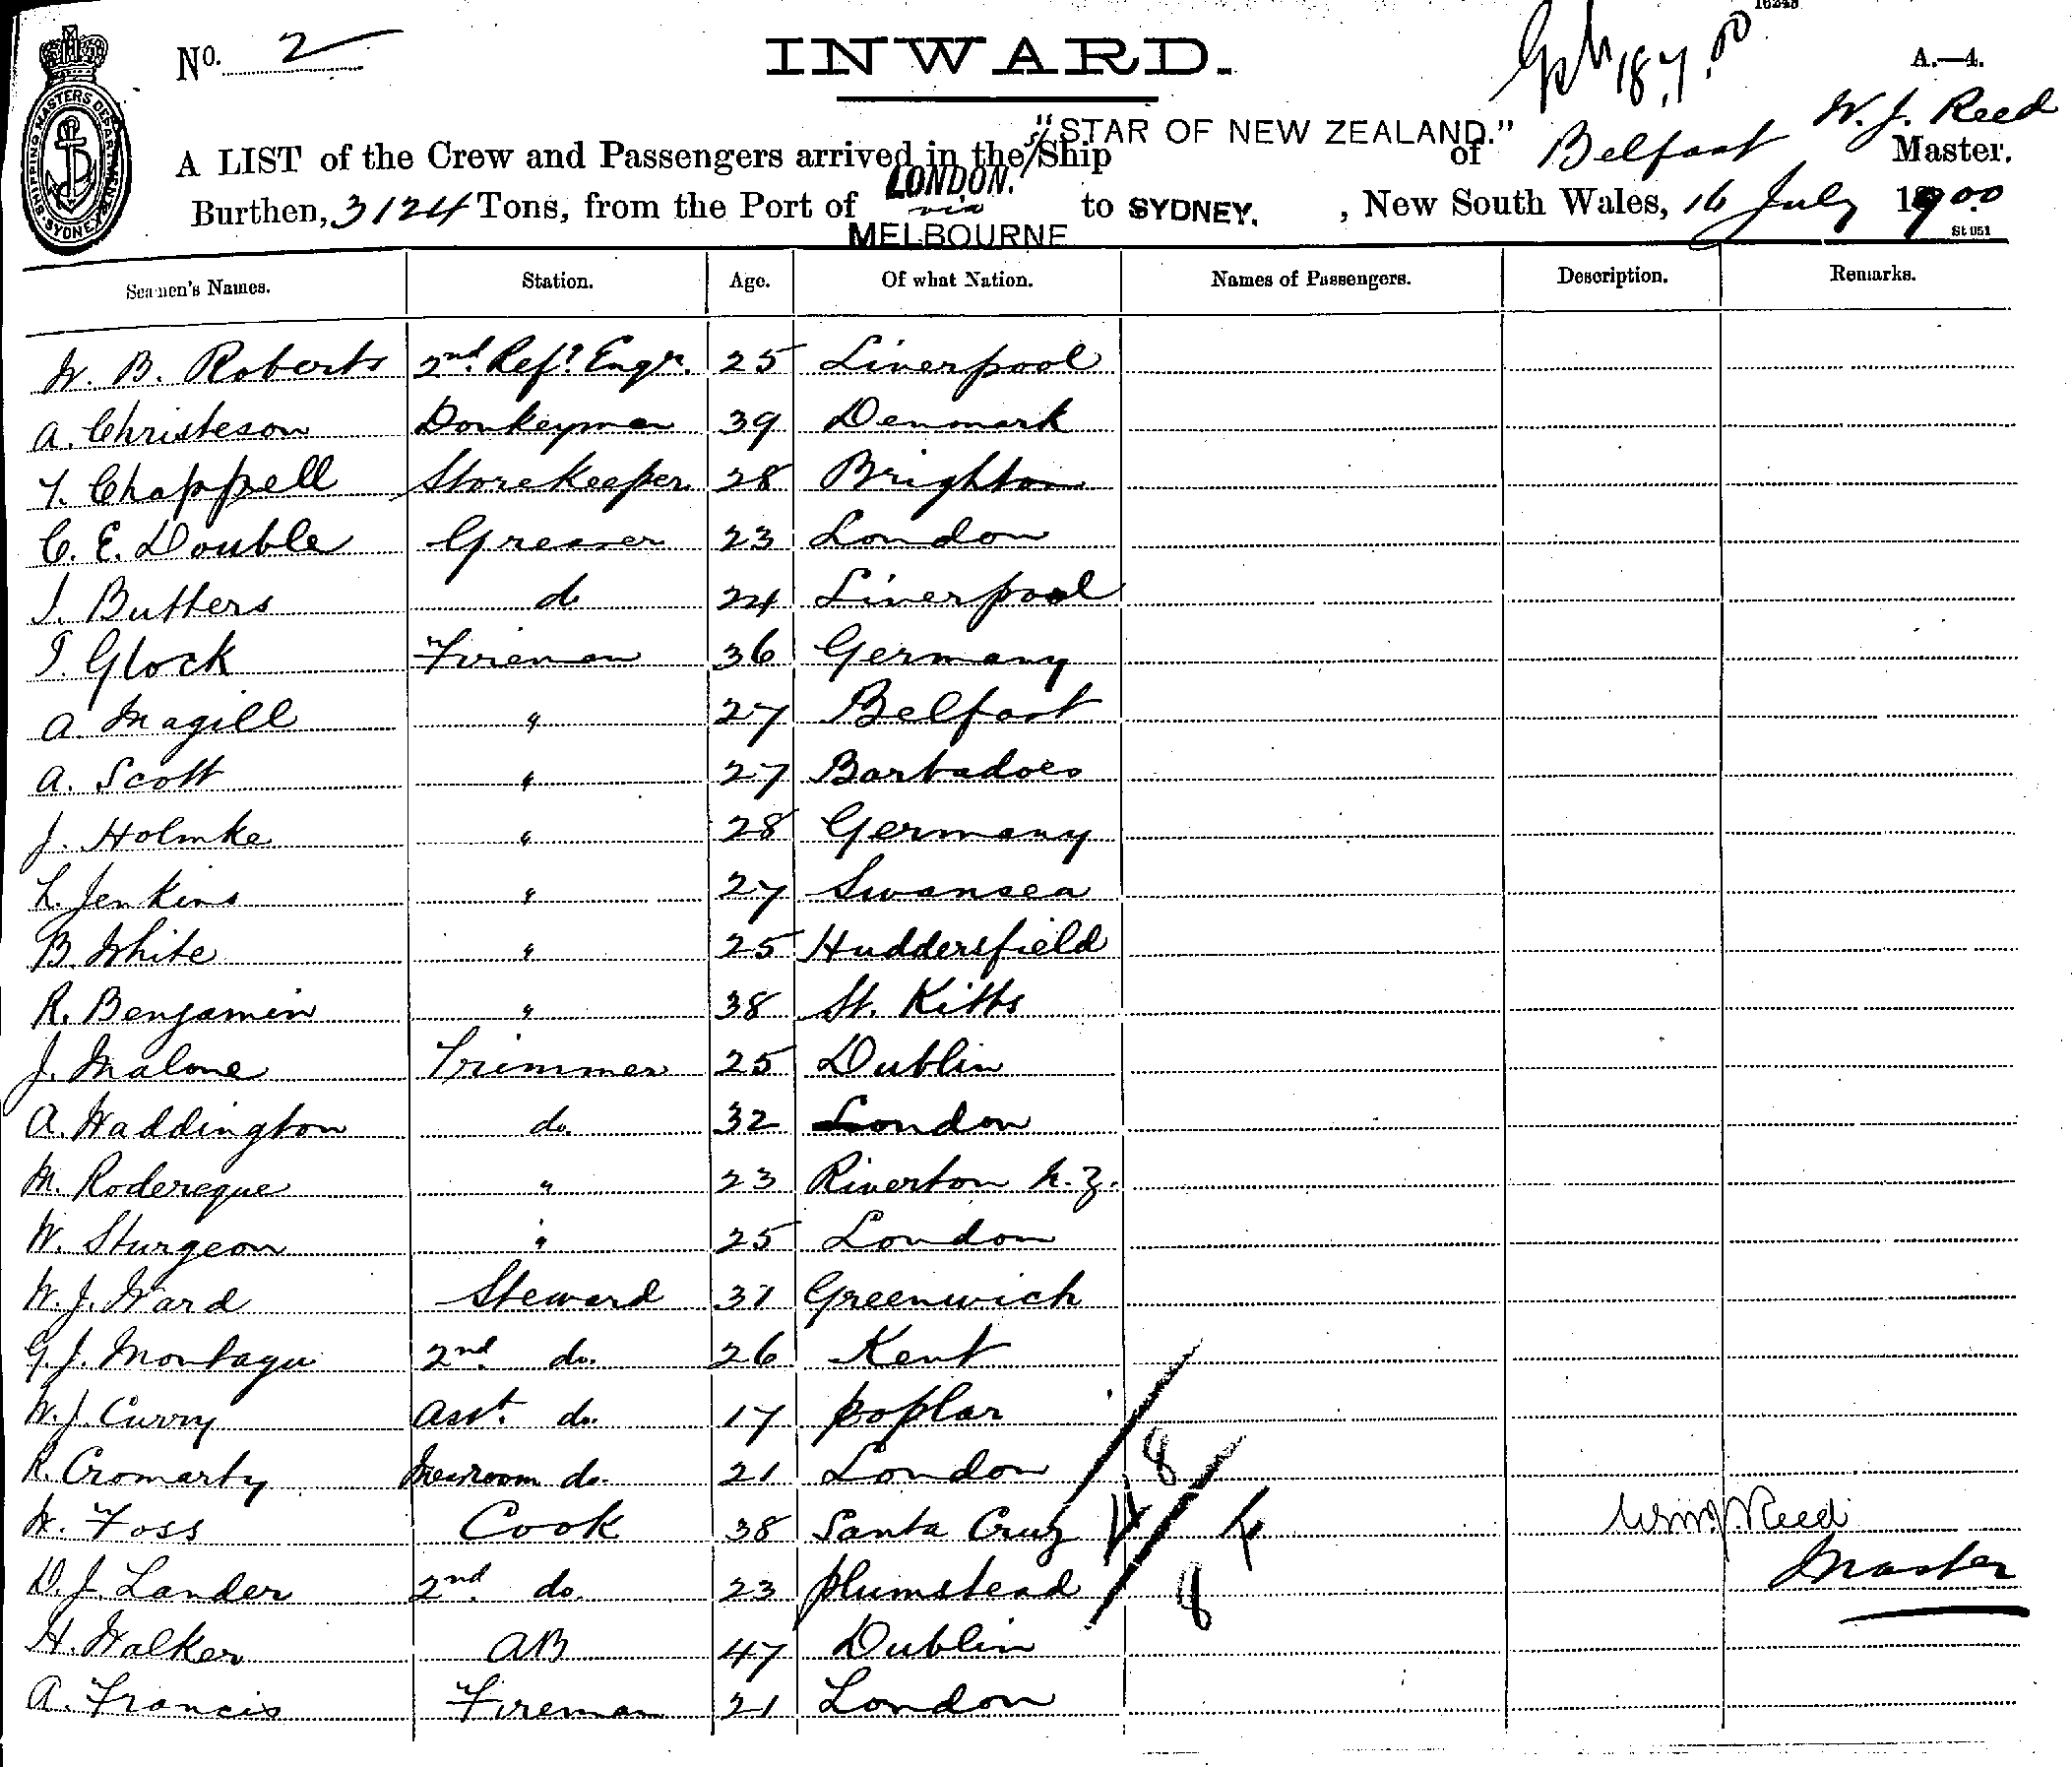 16249
No. 2
INWARD.
18.7.00
A.—4.
SHIPPING MASTERS DEPARTMENT SYDNEY
W. J. Reed
A LIST of the Crew and Passengers arrived in the S/Ship "STAR OF NEW ZEALAND." of Belfast Master.
Burthen, 3124 Tons, from the Port of LONDON. via MELBOURNE to SYDNEY. , New South Wales, 16 July 1900
St 051
Seamen's Names. Station. Age. Of what Nation. Names of Passengers. Description. Remarks.
W. B. Roberts 2nd Refr Engr. 25 Liverpool
A. Christeson Donkeyman 39 Denmark
Y. Chappell Storekeeper 28 Brighton
C. E. Double Greaser 23 London
J. Butters do 24 Liverpool
J. Glock Fireman 36 Germany
A. Magill " 27 Belfast
A. Scott " 27 Barbadoes
J. Holmke " 28 Germany
L. Jenkins " 27 Swansea
B. White " 25 Huddersfield
R. Benjamin " 38 St. Kitts
J. Malone Trimmer 25 Dublin
A. Waddington do. 32 London
M. Rodereque " 23 Riverton N.Z.
W. Sturgeon " 25 London
W. J. Ward Steward 37 Greenwich
G. J. Montagu 2nd do. 26 Kent
W. J. Curry Asst. do. 17 Poplar
R. Cromarty Messroom do. 21 London
W. Foss Cook 38 Santa Cruz
D. J. Lander 2nd do. 23 Plumstead
H. Walker AB 47 Dublin
A. Francis Fireman 21 London
Wm. J. Reed
Master